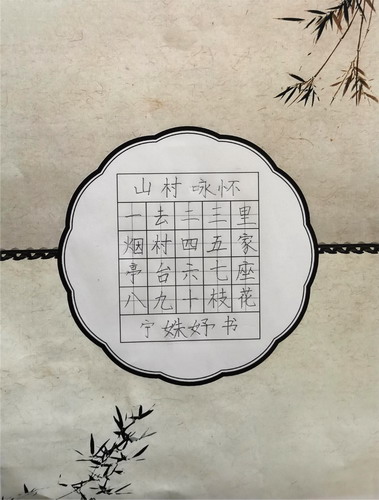 山村咏怀
一去二三里
烟村四五家
亭台六七座
八九十枝花
宁姝妤书